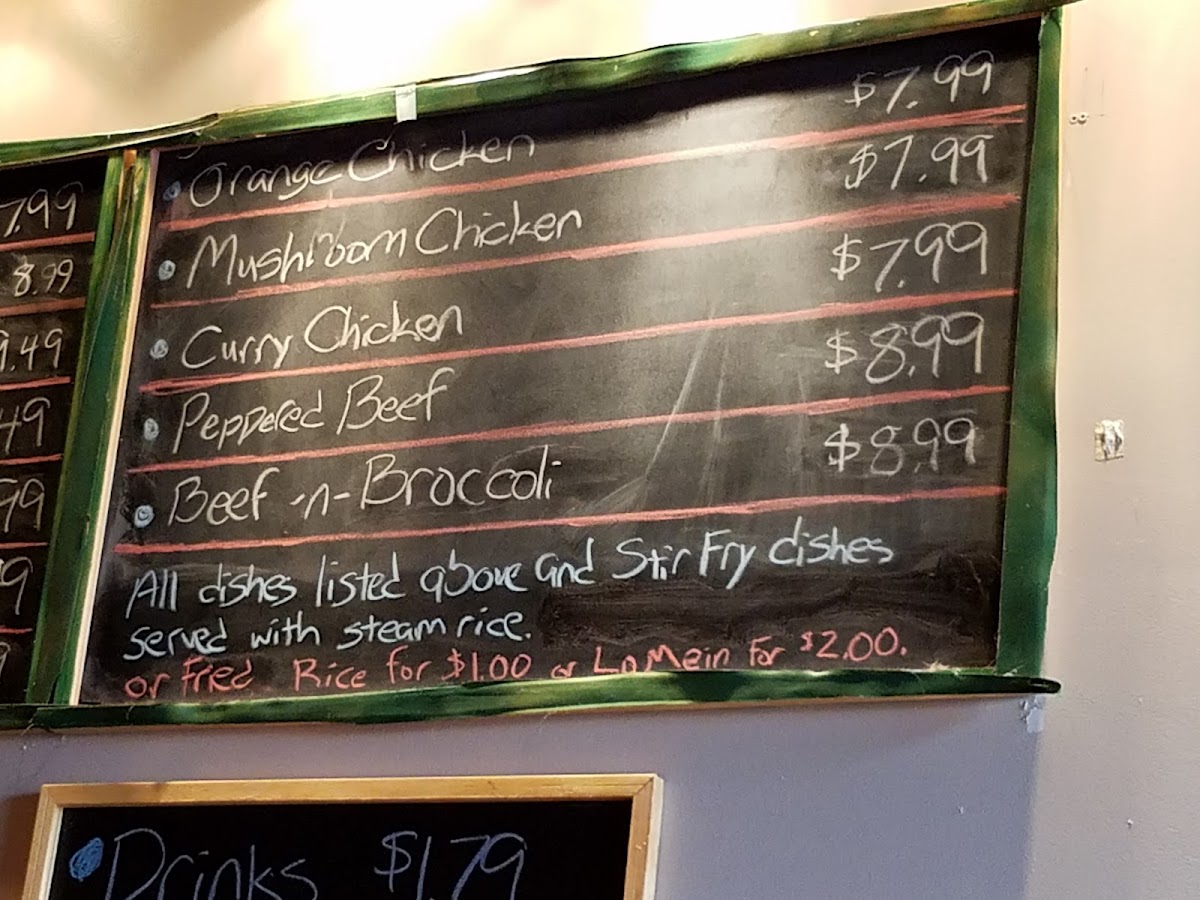 7.99
8.99
9.49
49
99
9
Orange Chicken $7.99
Mushroom Chicken $7.99
Curry Chicken $7.99
Peppered Beef $8.99
Beef -n- Broccoli $8.99
All dishes listed above and Stir Fry dishes
served with steam rice.
or Fried Rice for $1.00 or Lo Mein for $2.00.
Drinks $1.79